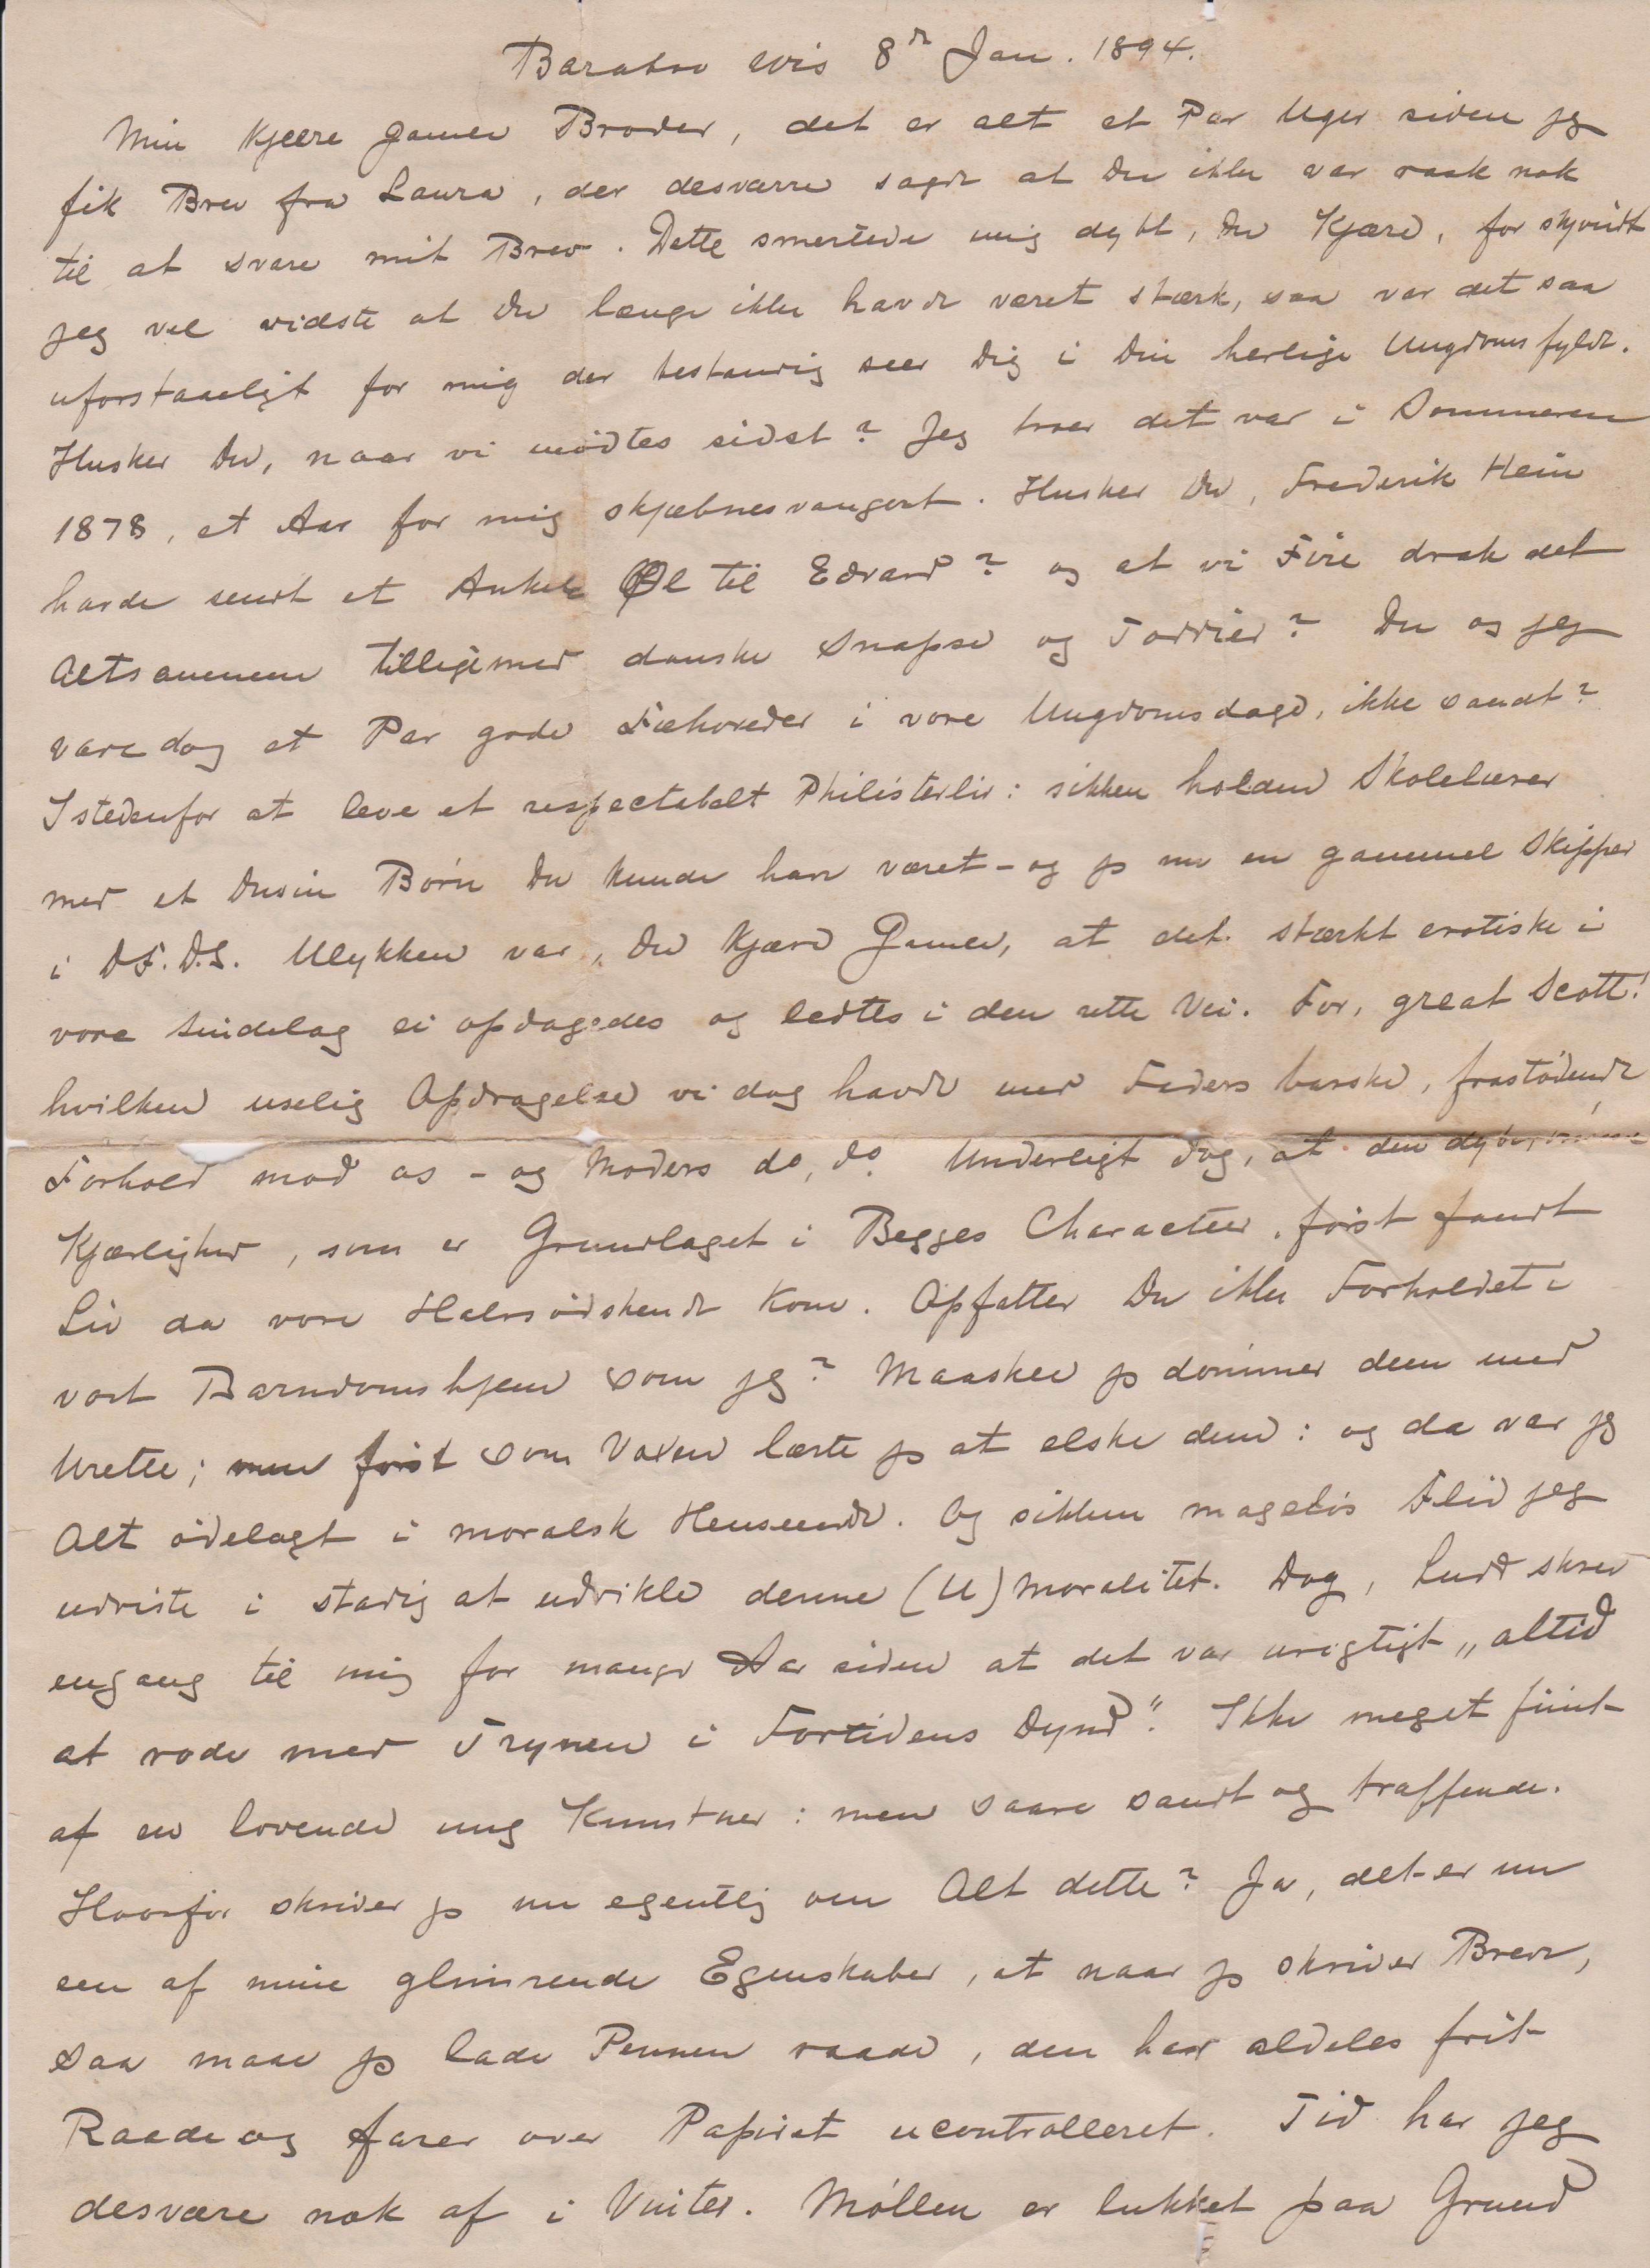 Baraboo Wis 8de Jan. 1894.
Min kjære gamle Broder, det er alt et Par Uger siden jeg
fik Brev fra Laura, der desværre sagde at Du ikke var rask nok
til at svare mit Brev. Dette smertede mig dybt, Du Kjære, for skjøndt
jeg vel vidste at Du længe ikke havde været stærk, saa var det saa
uforstaaeligt for mig der bestandig seer Dig i Din herlige Ungdomsfylde.
Husker Du, naar vi mødtes sidst? Jeg troer det var i Sommeren
1878, et Aar for mig skjæbnesvangert. Husker Du, Frederik Hein
havde sendt et Anker Øl til Edvard? og at vi Fire drak det
Altsammen tilligemed danske Snapse og Toddier? Du og jeg
vare dog et Par gode Fæhoveder i vore Ungdomsdage, ikke sandt?
Istedenfor at leve et respectabelt Philisterliv: sikken holden Skolelærer
med et Dusin Børn Du kunde have været - og jeg nu en gammel Skipper
i D.F.D.S. Ulykken var, Du kjære Gamle, at det stærkt erotiske i
vore Sindelag ei opdagedes og ledtes i den rette Vei. For, great Scott!
hvilken uselig Opdragelse vi dog havde med Faders barske, frastødende
Forhold mod os - og Moders do, do. Underligt dog, at den
Kjærlighed, som er Grundlaget i Begges Characteer, først fandt
Liv da vore Halvsødskende kom. Opfatter Du ikke Forholdet i
vort Barndomshjem som jeg? Maaskee jeg dømmer dem med
Urette; men først som Voxen lærte jeg at elske dem: og da var jeg
Alt ødelagt i moralsk Henseende. Og sikken mageløs Flid jeg
udviste i stadig at udvikle denne (U)moralitet. Dog, Ludv skrev
engang til mig for mange Aar siden at det var urigtigt „altid
at rode med Trynen i Fortidens Dynd". Ikke meget fiint
af en lovende ung Kunstner: men saare sandt og træffende.
Hvorfor skriver jeg nu egentlig om Alt dette? Ja, det er nu
een af mine glimrende Egenskaber, at naar jeg skriver Breve,
saa maa jeg lade Pennen raade, den har aldeles frit
Raade og farer over Papiret ucontrolleret. Tid har jeg
desværre nok af i Vinter. Møllen er lukket paa Grund